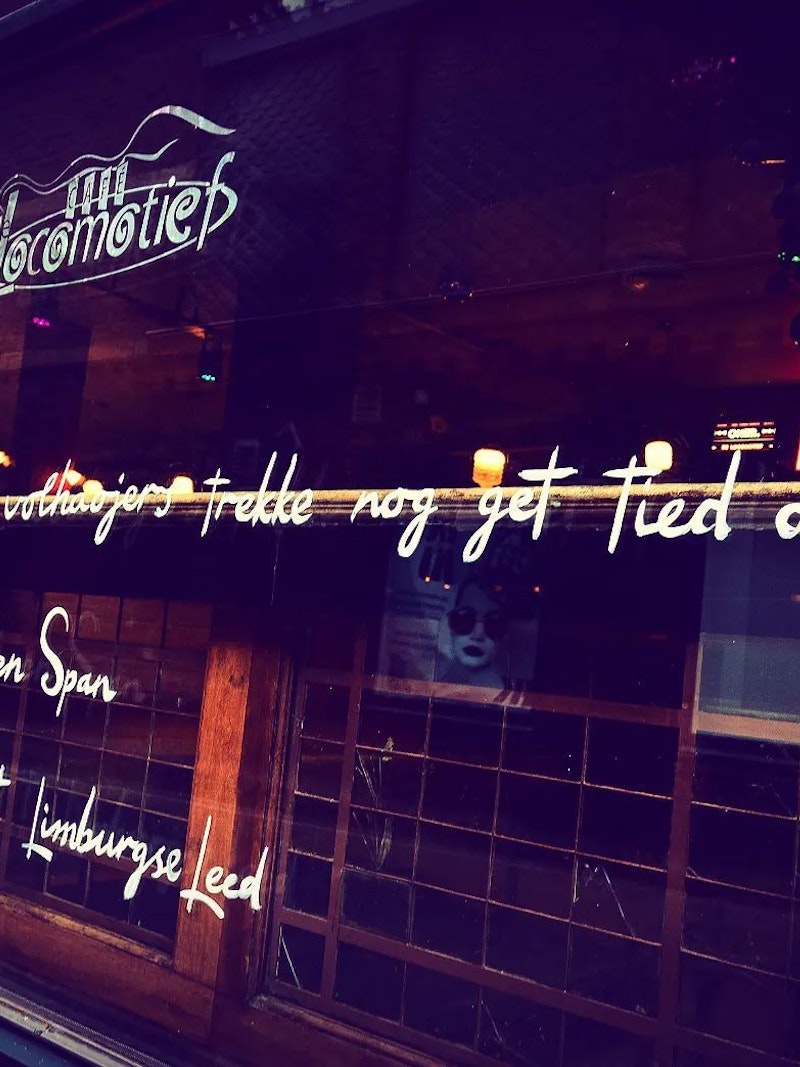 CAFE
locomotief
volhaojers trekke nog get tied
en Span
Limburgse Leed